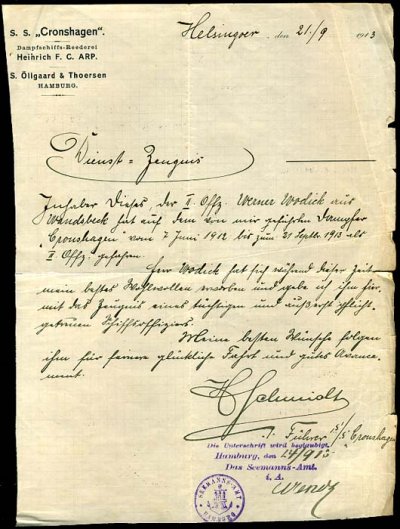 S. S. „Cronshagen".
Dampfschiffs-Reederei
Heinrich F. C. ARP.
S. Öllgaard & Thoersen
HAMBURG.
Helsingoer, den 21/9 1913
Dienst=Zeugnis
Inhaber Dieses, der II. Offz. Werner Wodick aus
Wandsbeck hat auf dem von mir geführten Dampfer
„Cronshagen" vom 7 Juni 1912 bis zum 21 Septbr 1913 als
II Offz. gefahren.
Herr Wodick hat sich während dieser Zeit
mein bestes Wohlwollen erworben und gebe ich ihm hier-
mit das Zeugnis eines tüchtigen und äußerst pflicht-
getreuen Schiffsoffiziers.
Meine besten Wünsche folgen
ihm für fernere glückliche Fahrt und gutes Avance-
ment.
H Schmidt
Führer S/S Cronshagen
Die Unterschrift wird beglaubigt.
Hamburg, den
Das Seemanns-Amt.
i. A.
Wendt
SEEMANNS-AMT
HAMBURG